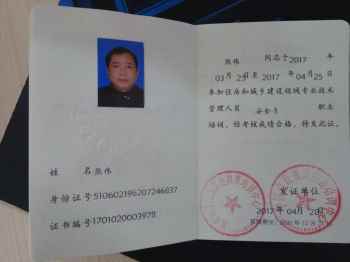 姓 名 熊伟
身份证号:510602196207246837
证书编号:1701020003978
熊伟 同志于2017年
03月23日至2017年04月25日
参加住房和城乡建设领域专业技术
管理人员 安全员 职业
培训，经考核成绩合格，特发此证。
发证单位
2017年04月28日